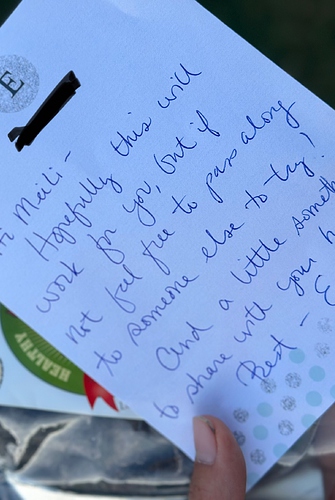 E
Hi Meili -
Hopefully this will
work for you, but if
not feel free to pass along
to someone else to try!
And a little someth
to share with your h
Best - E
HEALTHY